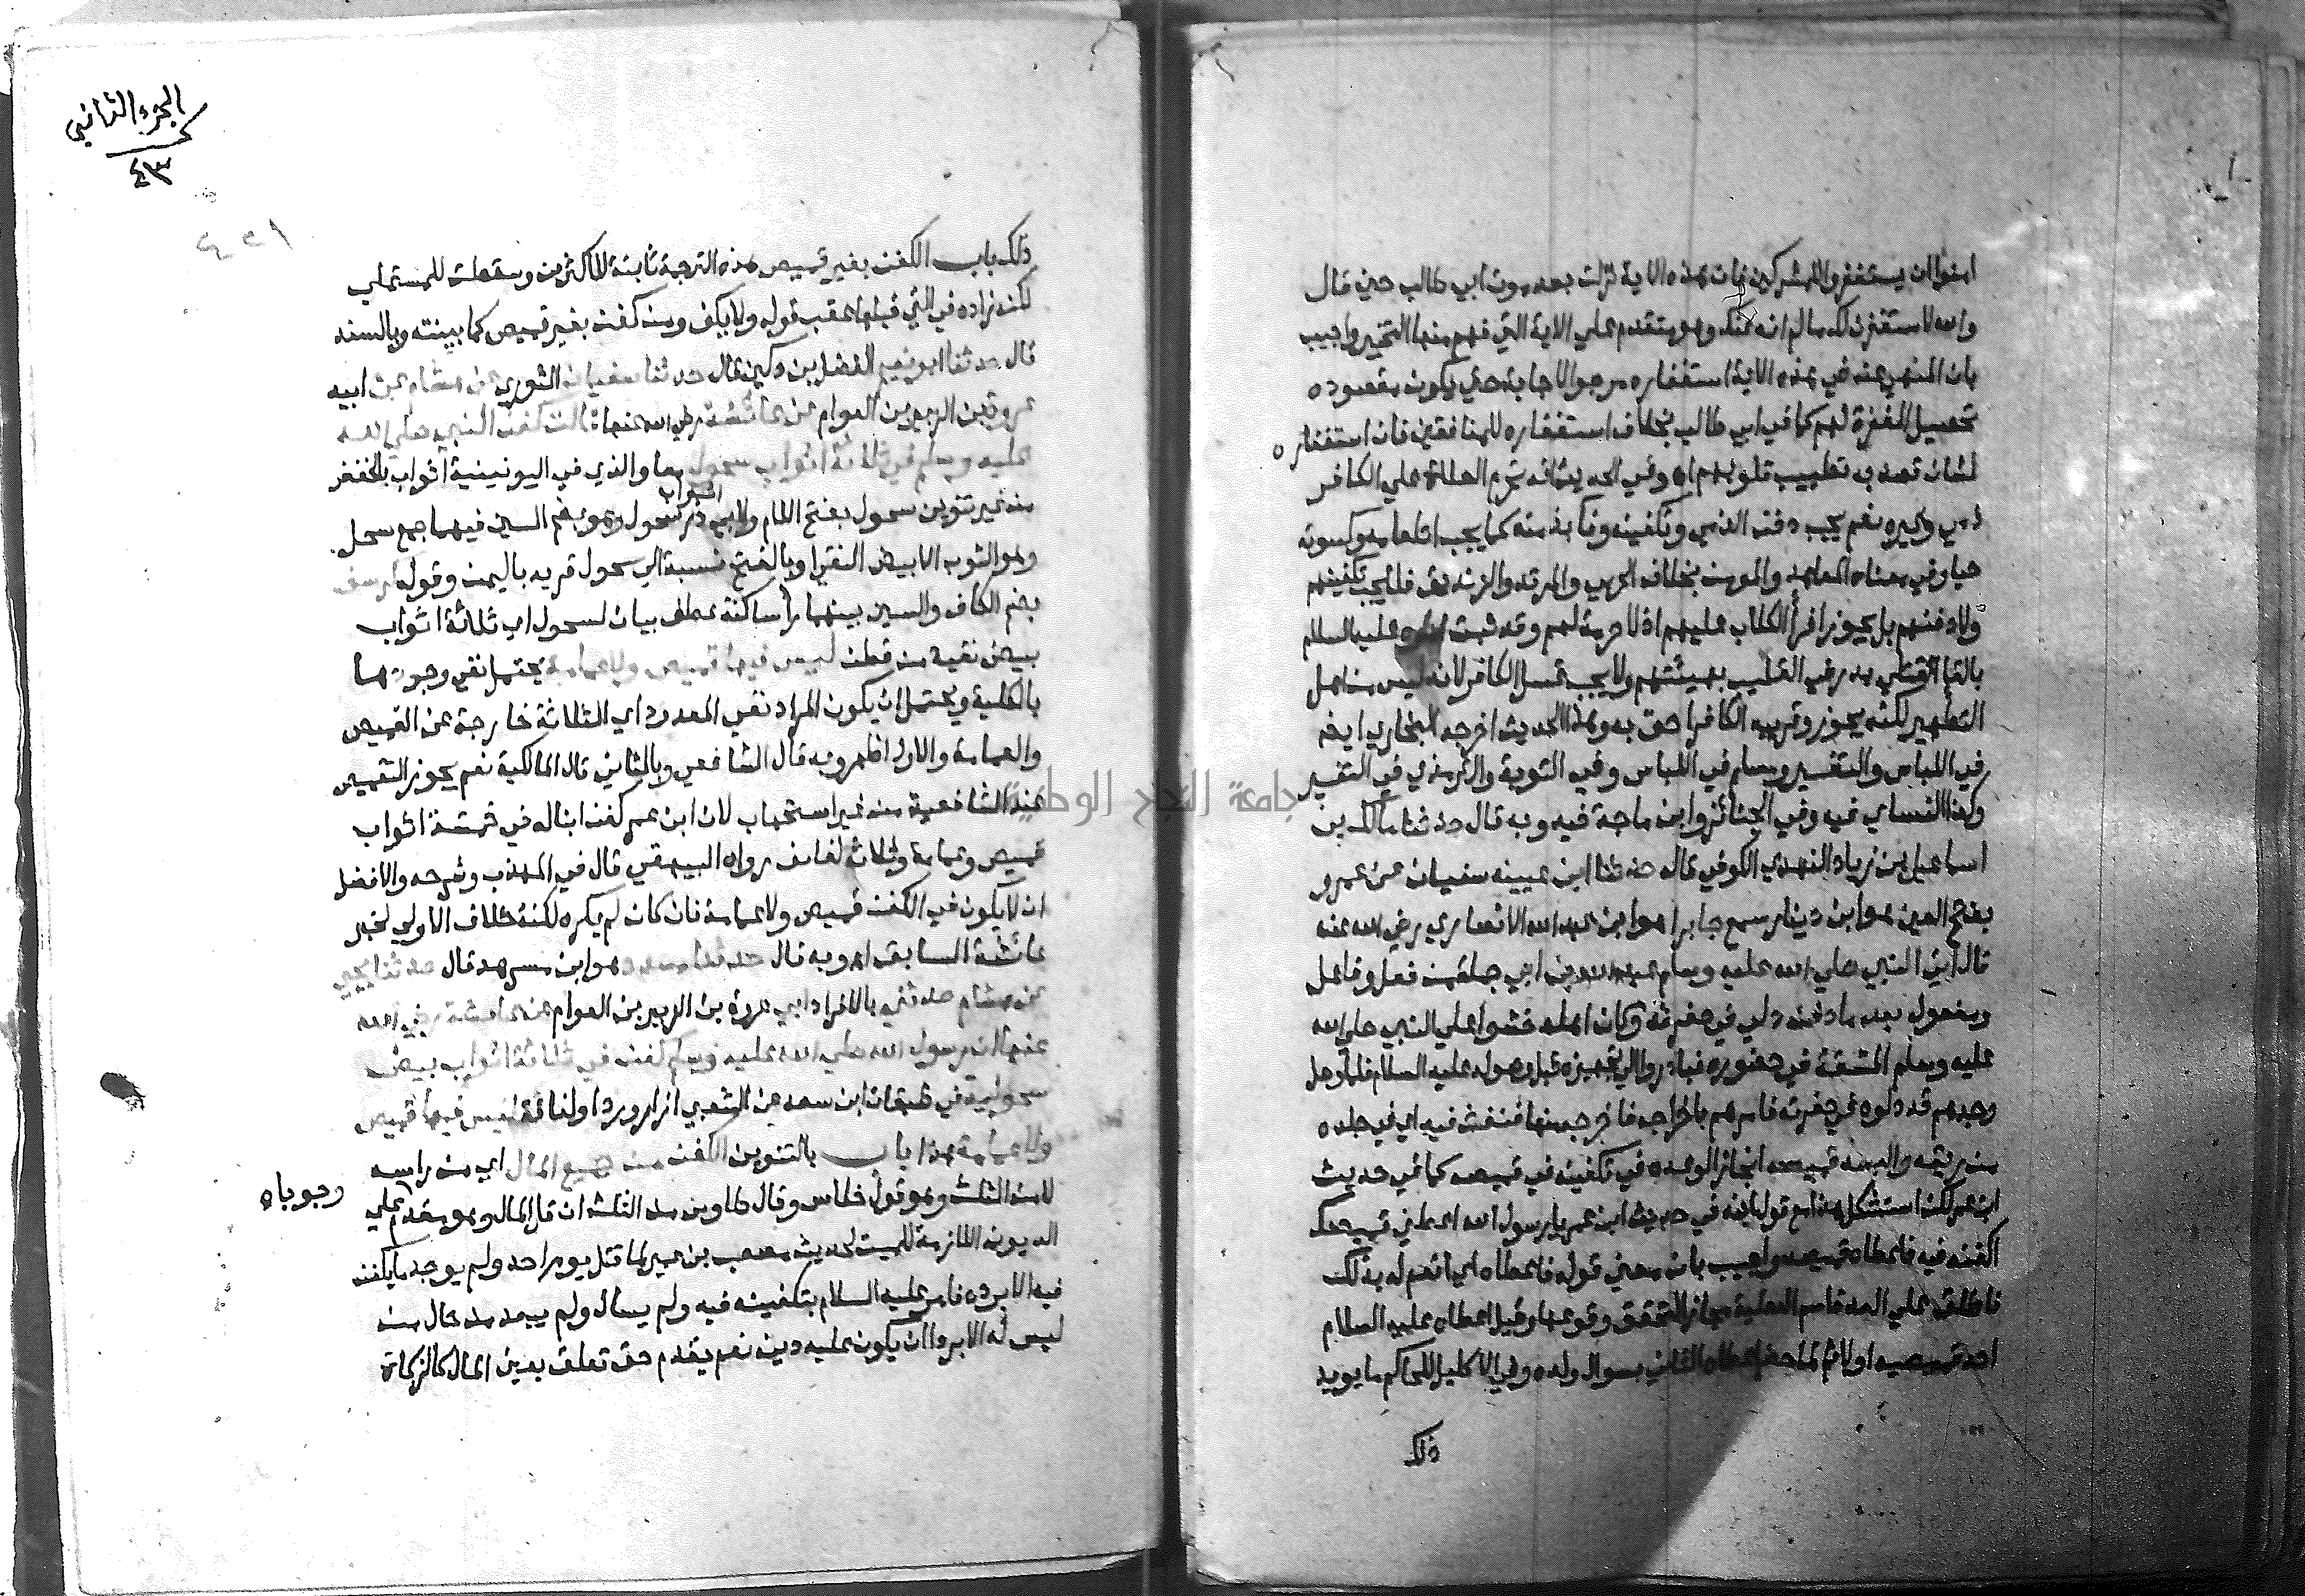 امنوا ان يستغفروا للمشركين فان هذه الاية نزلت بعد موت ابي طالب حين قال
والله لاستغفرن لك ما لم انه عنك وهو متقدم على الاية التي فهم منها التخيير واجيب
بان المنهي عنه في هذه الاية استغفاره مرجو الاجابة حتى يكون مقصوده
تحصيل المغفرة لهم كما في ابي طالب بخلاف استغفاره للمنافقين فان استغفاره
لسان قصد به تطييب قلوبهم اه وفي الحديث انه تحرم الصلاة علي الكافر
ذمي وغيره نعم يجب دفن الذمي وتكفينه وفا بذمته كما يجب اطعامه وكسوته
حيا وفي معناه المعاهد والمومن بخلاف الحربي والمرتد والزنديق فلا يجب تكفينهم
ولا دفنهم بل يجوز اغرا الكلاب عليهم اذ لا حرمة لهم وقد ثبت امره عليه السلام
بالقا قتلي بدر في القليب بهيئتهم ولا يجب غسل الكافر لانه ليس من اهل
التطهير لكنه يجوز وقريبه الكافر احق به وهذا الحديث اخرجه البخاري ايضا
في اللباس والتفسير ومسلم في اللباس وفي التوبة والترمذي في التفسير
وكذا النساي فيه وفي الجنائز وابن ماجة فيه وبه قال حدثنا مالك بن
اسماعيل بن زياد النهدي الكوفي قال حدثنا ابن عيينه سفيان عن عمرو
بفتح العين هو ابن دينار سمع جابرا هو ابن عبد الله الانصاري رضي الله عنه
قال اتي النبي صلي الله عليه وسلم عبد الله بن ابي جملة من فعل وفاعل
ومفعول بعد ما دفن دلي في حفرته وكان اهله خشوا علي النبي صلي الله
عليه وسلم المشقة في حضوره فبادروا الي تجهيزه قبل وصوله عليه السلام فلما وصل
وجدهم قد دلوه في حفرته فامرهم باخراجه فاخرجه منها فنفث فيه اي في جلده
من ريقه والبسه قميصه انجازا لوعده في تكفينه في قميصه كما في حديث
ابن عمر لكن استشكل هذا مع قول ابنه في حديث ابن عمر يا رسول الله اعطني قميصك
اكفنه فيه فاعطاه قميصه واجيب بان معني قوله فاعطاه اي انعم له بذلك
فاطلق علي العدة اسم العطية مجازا لتحقق وقوعها وقيل اعطاه عليه السلام
احد قميصيه اولا ثم لما حضر اعطاه الثاني بسوال ولده وفي الاكليل للحاكم ما يويد
ذلك
الجزء الثاني
٤٣
ذلك باب الكفن بغير قميص هذه الترجمة ثابتة للاكثرين وسقطت للمستملي
لكنه زاده في التي قبلها عقب قوله ولا يكف ومن كفن بغير قميص كما بينته وبالسند
قال حدثنا ابو نعيم الفضل بن دكين قال حدثنا سفيان الثوري عن هشام عن ابيه
عروة بن الزبير بن العوام عن عائشة رضي الله عنها قالت كفن النبي صلي الله
عليه وسلم في ثلاثة اثواب سحول والذي في اليونينية اثواب بالخفض
من غير تنوين سحول بفتح اللام ولابي ذر اثواب سحول وهو بضم السين فيهما جمع سحل
وهو الثوب الابيض النقي او بالفتح نسبة الي سحول قريه باليمن وقوله كرسف
بضم الكاف والسين بينهما را ساكنة عطف بيان لسحول اي ثلاثة اثواب
بيض نقية من قطن ليس فيها قميص ولا عمامة يحتمل نفي وجودهما
بالكلية ويحتمل ان يكون المراد نفي المعدود اي الثلاثة خارجة عن القميص
والعمامة والاول اظهر وبه قال الشافعي وبالثاني قال المالكية نعم يجوز التقميص
عند الشافعية من غير استحباب لان ابن عمر كفن ابنا له في خمسة اثواب
قميص وعمامة وثلاثة لفائف رواه البيهقي قال في المهذب وشرحه والافضل
ان لا يكون في الكفن قميص ولا عمامة فان كان لم يكره لكنه خلاف الاولي لخبر
عائشة السابق اه وبه قال حدثنا مسدد هو ابن مسرهد قال حدثنا يحيي
عن هشام حدثني بالافراد ابي عروة بن الزبير بن العوام عن عائشة رضي الله
عنها ان رسول الله صلي الله عليه وسلم كفن في ثلاثة اثواب بيض
سحولية في طبقات ابن سعد عن الشعبي ازار وردا ولفافة ليس فيها قميص
ولا عمامة هذا باب بالتنوين الكفن من جميع المال اي من راسه
لا من الثلث وهو قول خلاس وقال طاوس من الثلث ان قل المال وهو مقدم علي
وجوباه
الديون اللازمة للميت لحديث مصعب بن عمير لما قتل يوم احد ولم يوجد ما يكفن
فيه الا برده فامر عليه السلام بتكفينه فيه ولم يسال ولم يبعد من حال من
ليس له الا بردا ان يكون عليه دين نعم يقدم حق تعلق بعين المال كالزكاة